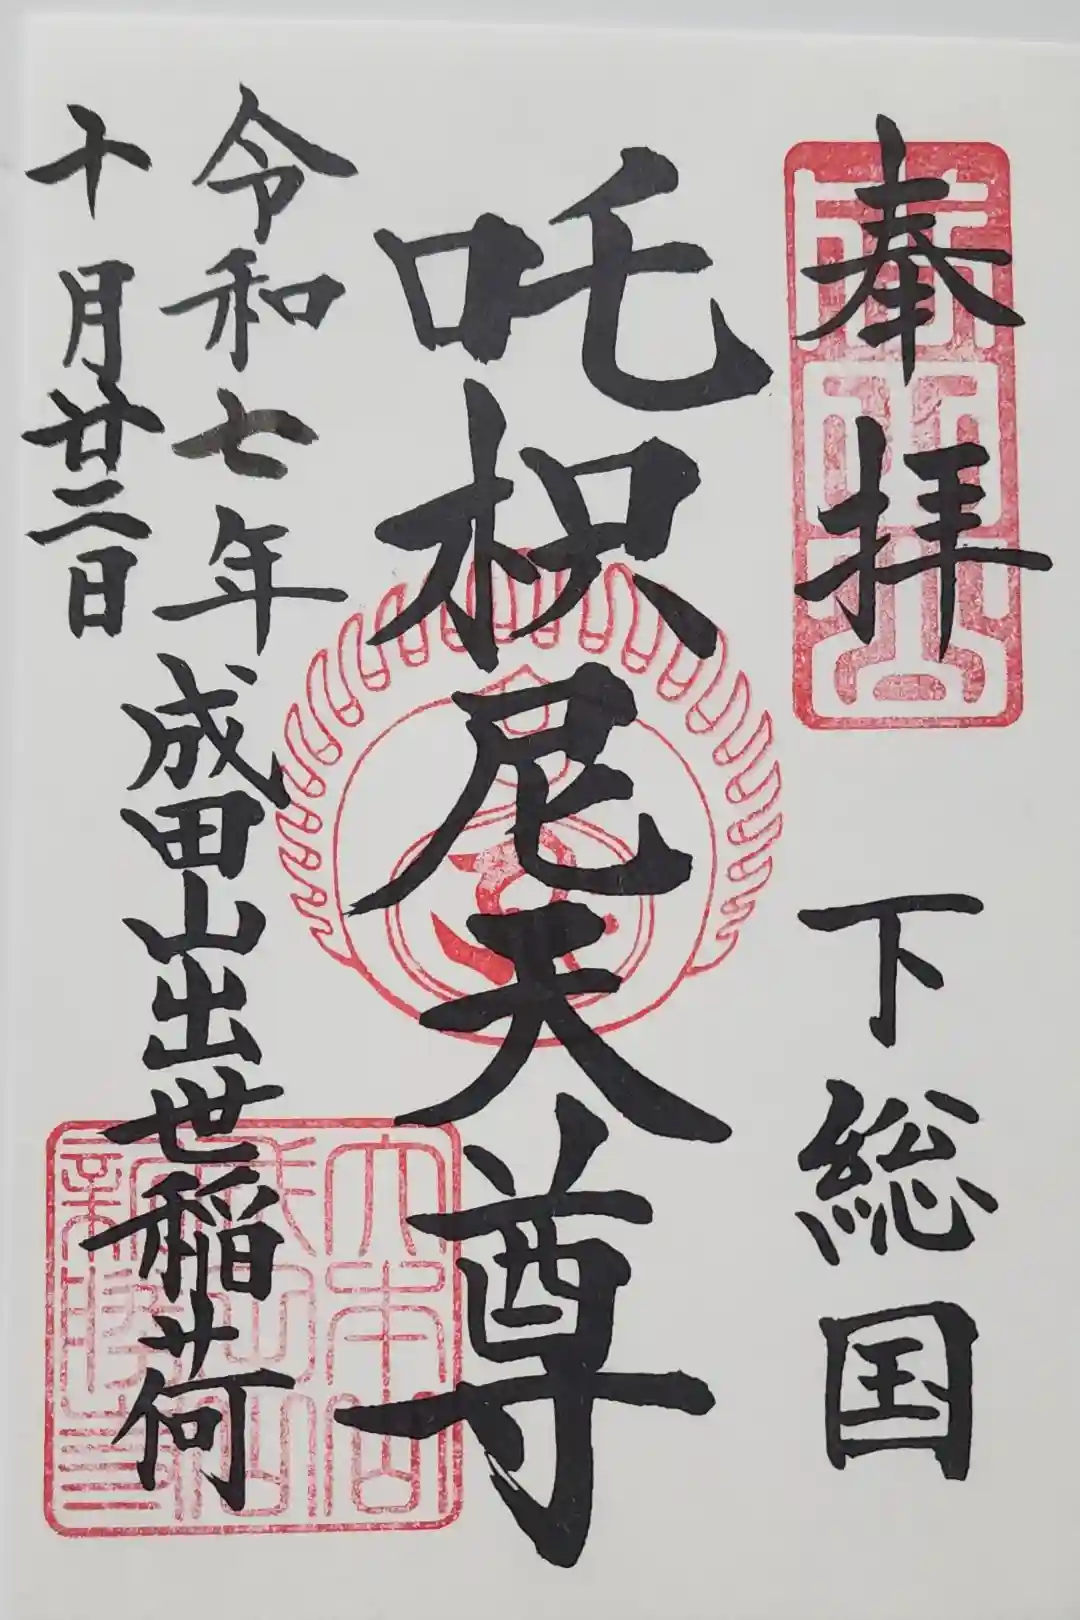 奉拝 下総国
吒枳尼天尊
令和七年
十月廿二日
成田山出世稲荷